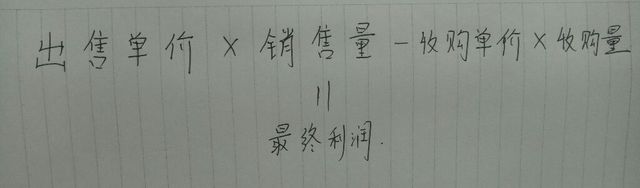 出售单价 × 销售量 - 收购单价 × 收购量
=
最终利润.